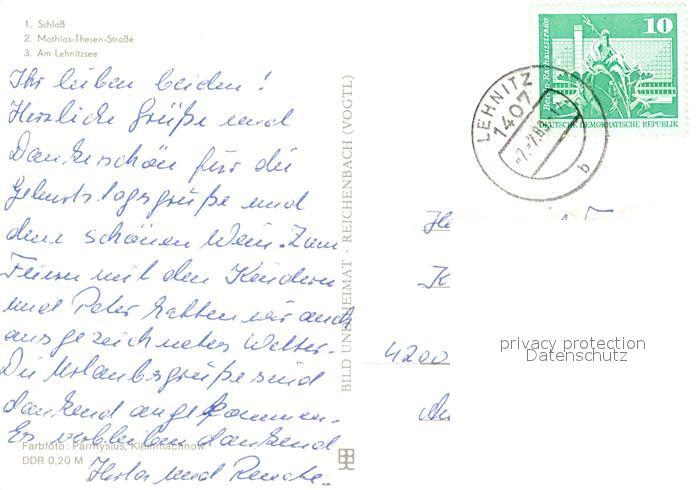 1. Schloß
2. Mathias-Thesen-Straße
3. Am Lehnitzsee
Ihr lieben beiden!
Herzliche Grüße und
Dankeschön für die
Geburtstagsgrüße und
den schönen Wein. Zum
Feiern mit den Kindern
und Peter hatten wir auch
ausgezeichnetes Wetter.
Die Urlaubsgrüße sind
dankend angekommen.
Es verbleiben dankend
und Renate.
Farbfoto: Parmysius, Kleinmachnow
DDR 0,20 M
BILD UND HEIMAT · REICHENBACH (VOGTL)
10
Berlin-Rathausstraße
DEUTSCHE DEMOKRATISCHE REPUBLIK
LEHNITZ
1407
b
4200
privacy protection
Datenschutz